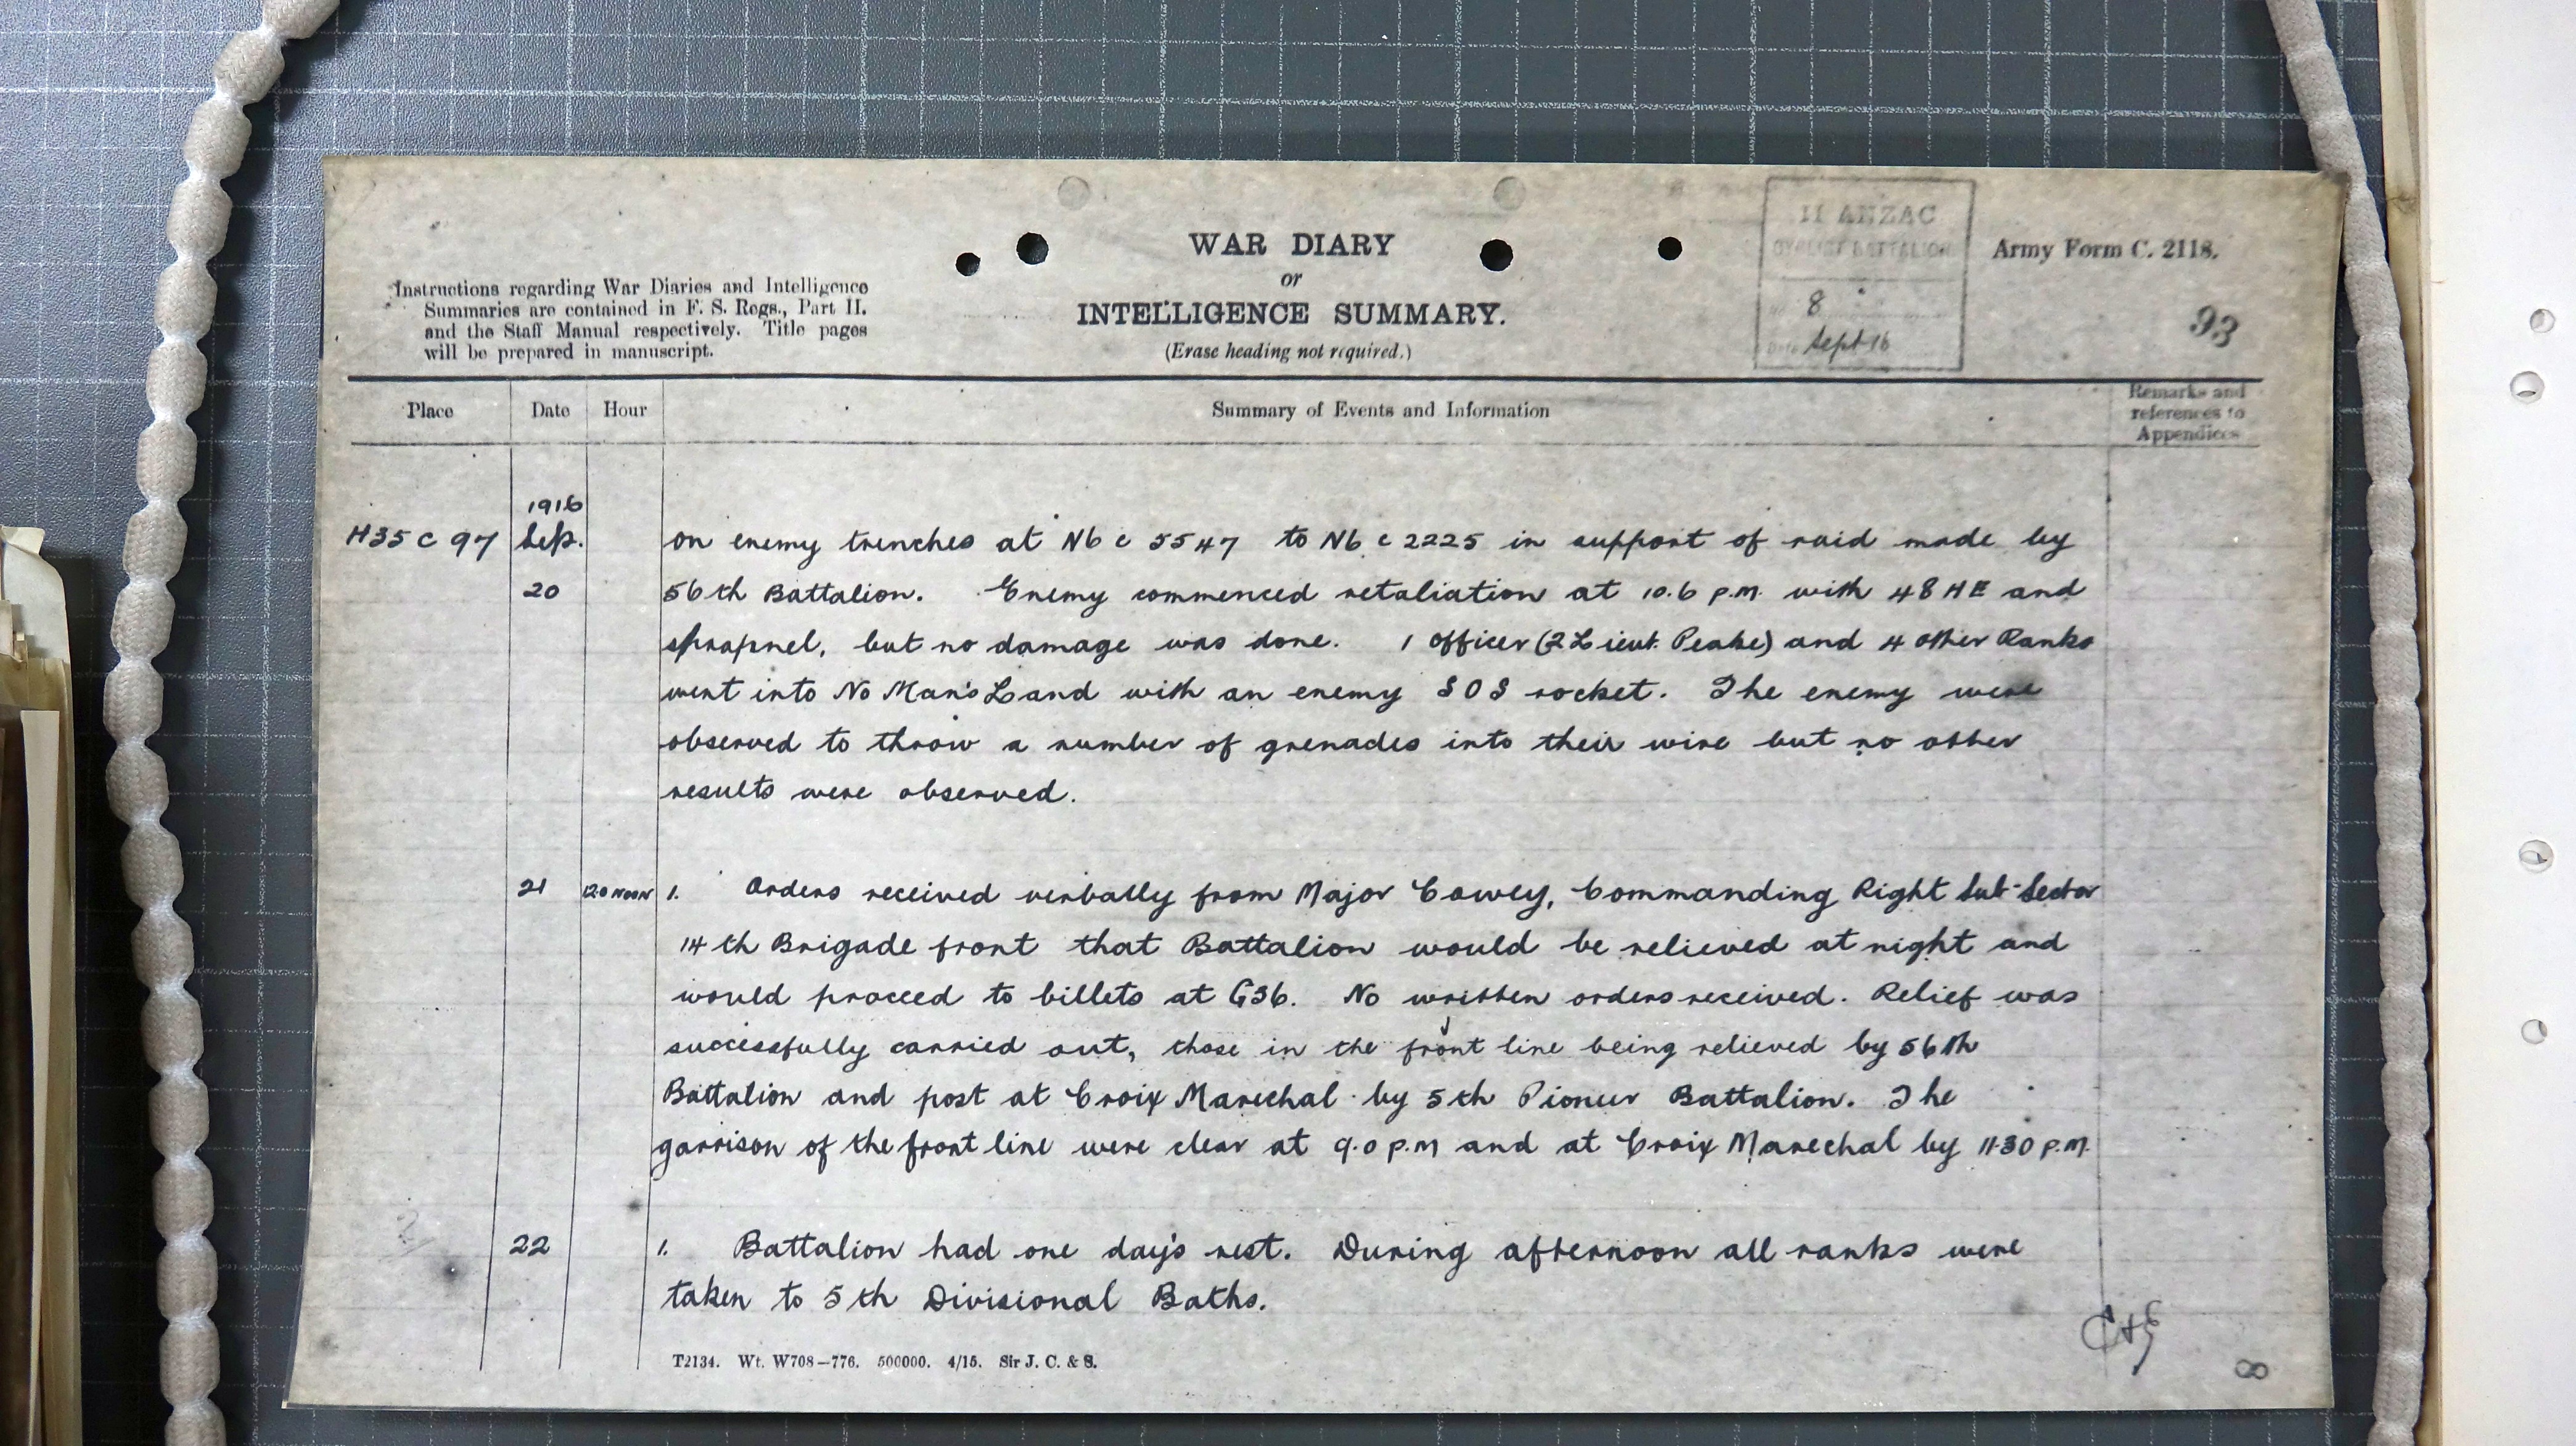 II ANZAC
CYCLIST BATTALION
8
Date Sept 16
Army Form C. 2118.
93
WAR DIARY
or
INTELLIGENCE SUMMARY.
(Erase heading not required.)
Instructions regarding War Diaries and Intelligence
Summaries are contained in F. S. Regs., Part II.
and the Staff Manual respectively. Title pages
will be prepared in manuscript.
Place Date Hour Summary of Events and Information
Remarks and
references to
Appendices
1916
H35 C 97 Sep. on enemy trenches at N6 c 5547 to N6 c 2225 in support of raid made by
20 56th Battalion. Enemy commenced retaliation at 10.6 p.m. with 48 HE and
shrapnel, but no damage was done. 1 Officer (2 Lieut. Peake) and 4 other Ranks
went into No Man's Land with an enemy SOS rocket. The enemy were
observed to throw a number of grenades into their wire but no other
results were observed.
21 12.0 NOON 1. Orders received verbally from Major Cowey, Commanding Right Sub-Sector
14th Brigade front that Battalion would be relieved at night and
would proceed to billets at G36. No written orders received. Relief was
successfully carried out, those in the front line being relieved by 56th
Battalion and post at Croix Marechal by 5th Pioneer Battalion. The
garrison of the front line were clear at 9.0 p.m and at Croix Marechal by 11.30 p.m.
22 1. Battalion had one day's rest. During afternoon all ranks were
taken to 5th Divisional Baths.
T2134. Wt. W708—776. 500000. 4/15. Sir J. C. & S.
8